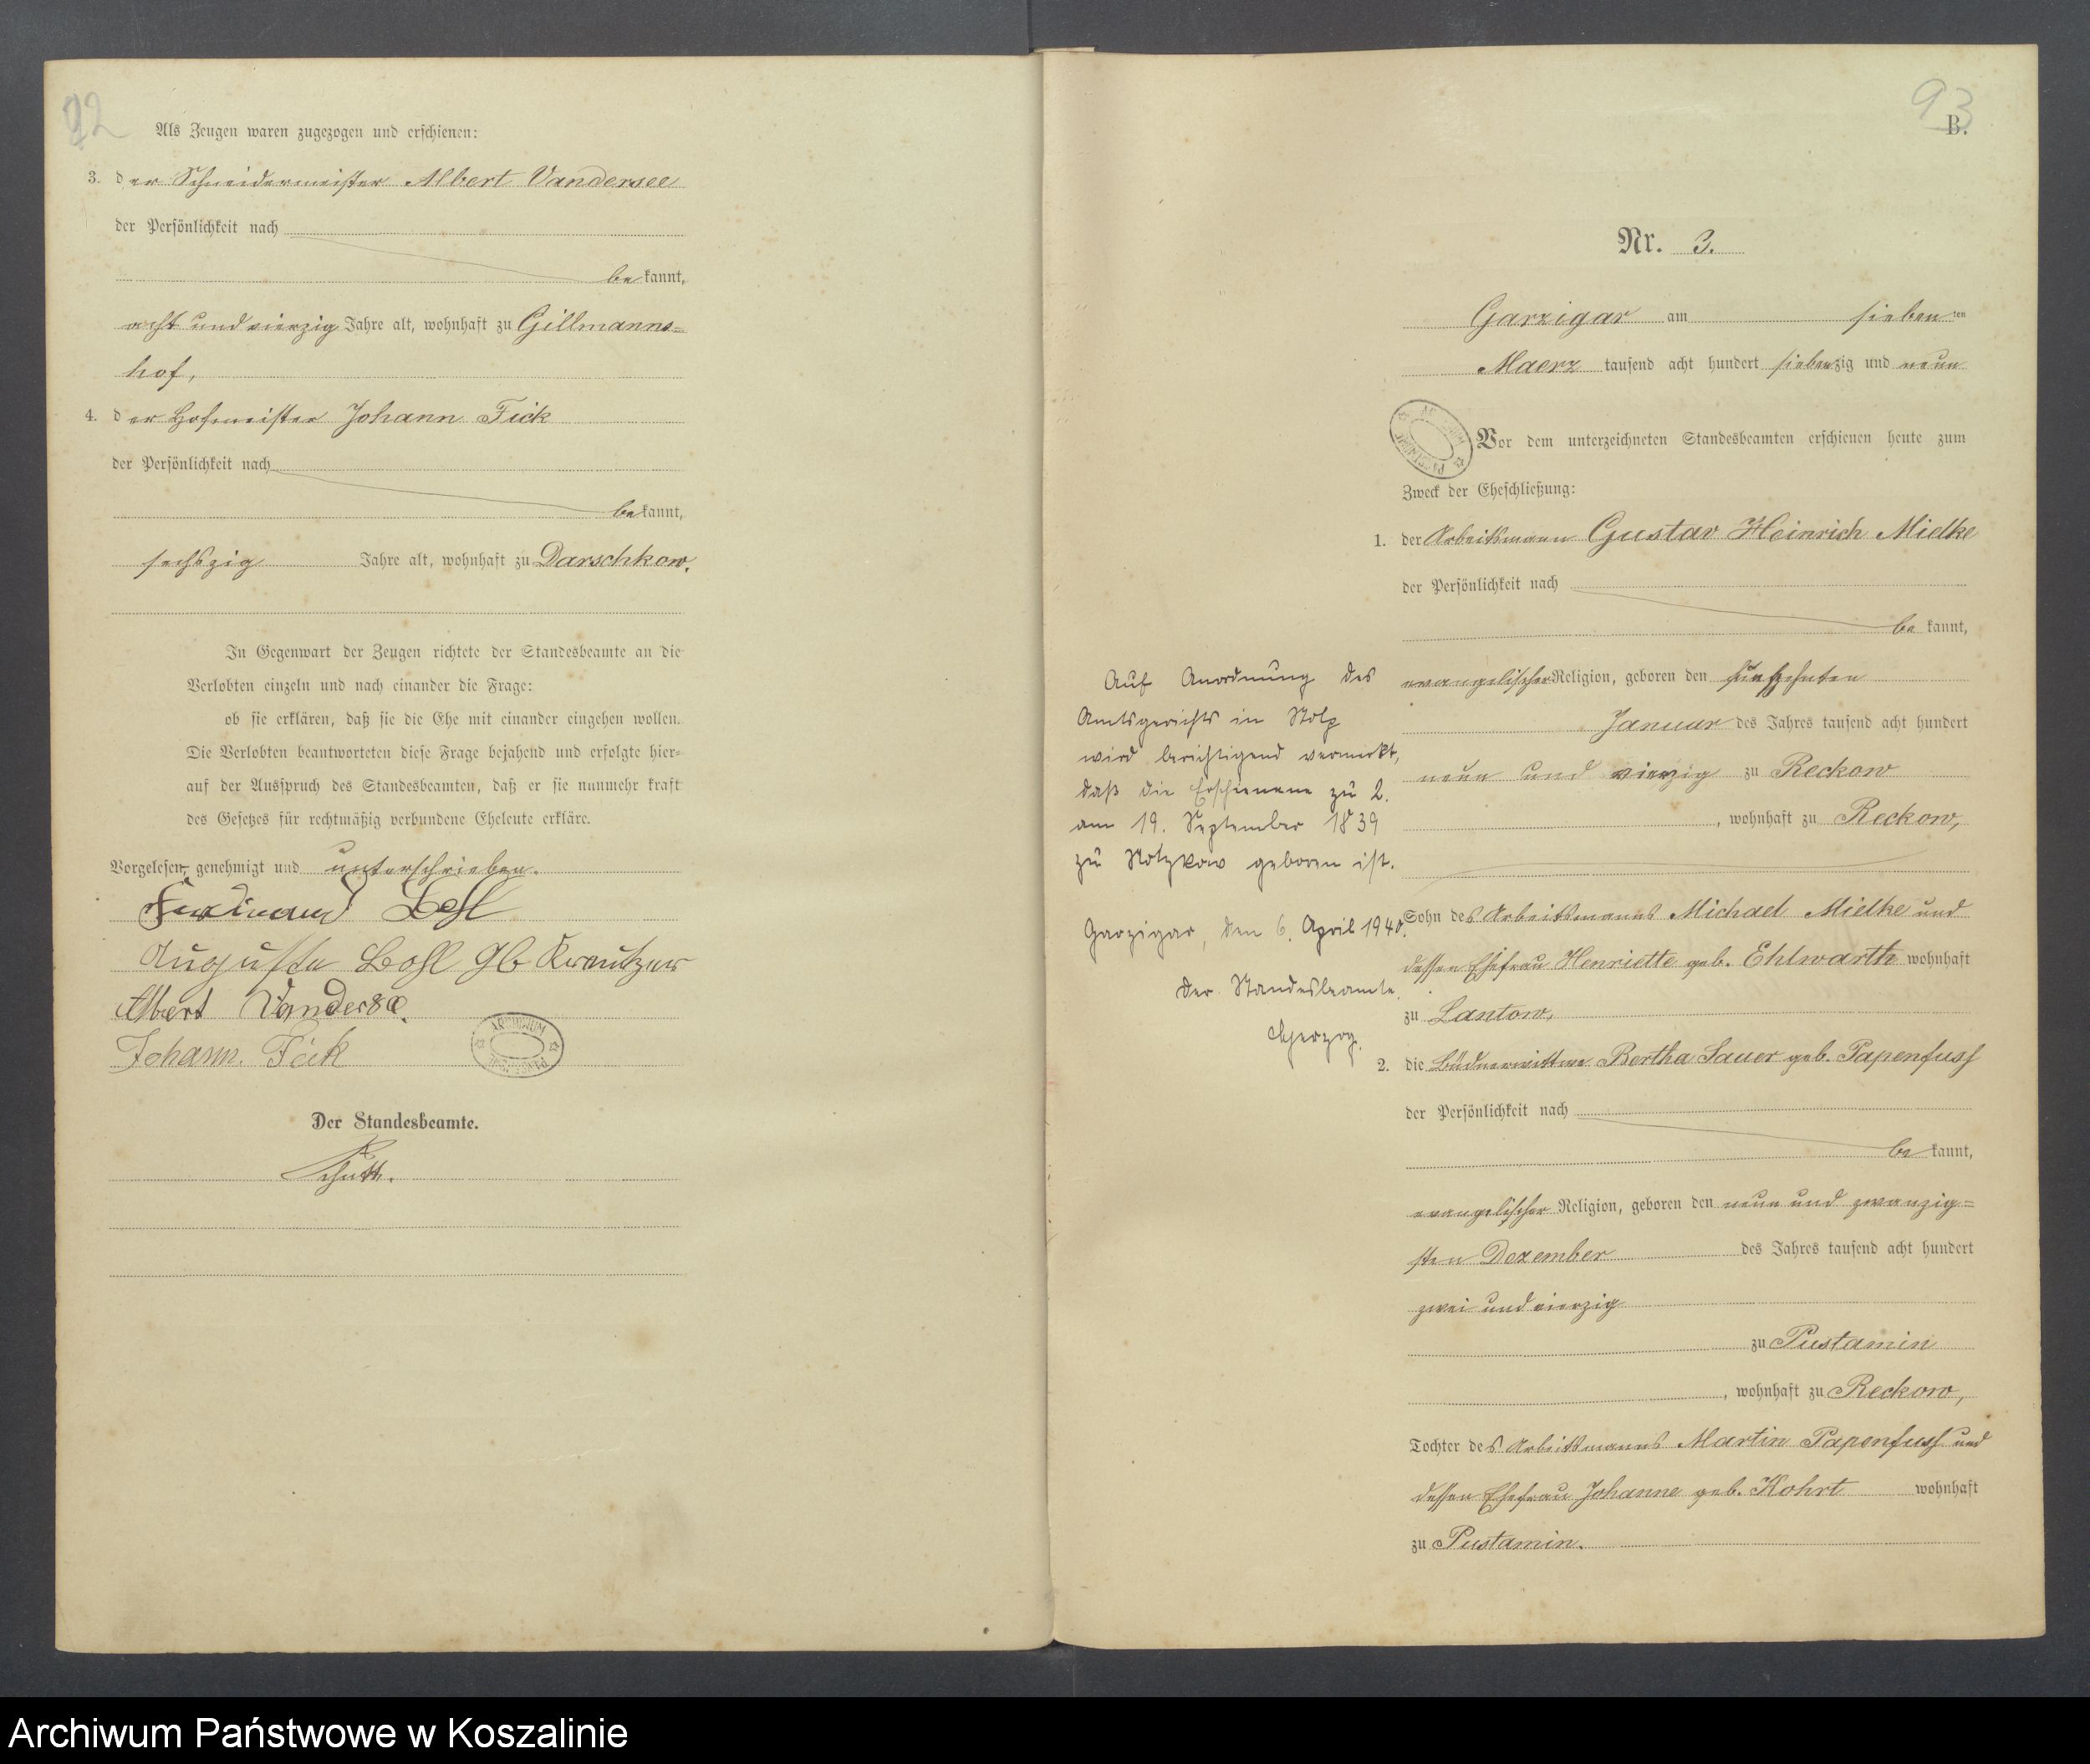 92
Als Zeugen waren zugezogen und erschienen:
3. der Schneidermeister Albert Vandersee
der Persönlichkeit nach
bekannt,
acht und vierzig Jahre alt, wohnhaft zu Gillmanns-
hof,
4. der Hofmeister Johann Fick
der Persönlichkeit nach
bekannt,
sechszig Jahre alt, wohnhaft zu Darschkow.
In Gegenwart der Zeugen richtete der Standesbeamte an die
Verlobten einzeln und nach einander die Frage:
ob sie erklären, daß sie die Ehe mit einander eingehen wollen.
Die Verlobten beantworteten diese Frage bejahend und erfolgte hier-
auf der Ausspruch des Standesbeamten, daß er sie nunmehr kraft
des Gesetzes für rechtmäßig verbundene Eheleute erkläre.
Vorgelesen, genehmigt und unterschrieben.
Ferdinand
Auguste
Albert Vandersee
Johann Fick
ARCHIWUM
Der Standesbeamte.
93
B.
Nr. 3.
Garzigar am siebenten
Maerz tausend acht hundert siebenzig und neun
Vor dem unterzeichneten Standesbeamten erschienen heute zum
Zweck der Eheschließung:
1. der Arbeitsmann Gustav Heinrich Mielke
der Persönlichkeit nach
bekannt,
evangelischer Religion, geboren den fünfzehnten
Januar des Jahres tausend acht hundert
neun und vierzig zu Reckow
, wohnhaft zu Reckow,
Sohn des Arbeitsmanns Michael Mielke und
dessen Ehefrau Henriette geb. Ehlwarth wohnhaft
zu Lantow,
2. die Büdnerwittwe Bertha Sauer geb. Papenfuss
der Persönlichkeit nach
bekannt,
evangelischer Religion, geboren den neun und zwanzig-
sten Dezember des Jahres tausend acht hundert
zwei und vierzig
zu Pustamin
, wohnhaft zu Reckow,
Tochter des Arbeitsmanns Martin Papenfuss und
dessen Ehefrau Johanne geb. Kohrt wohnhaft
zu Pustamin.
Auf Anordnung des
Amtsgerichts in Stolp
wird berichtigend vermerkt,
daß die Erschienene zu 2.
am 19. September 1839
zu Notzkow geboren ist.
Garzigar, den 6. April 1940.
Der Standesbeamte.
Herzog.
Archiwum Państwowe w Koszalinie